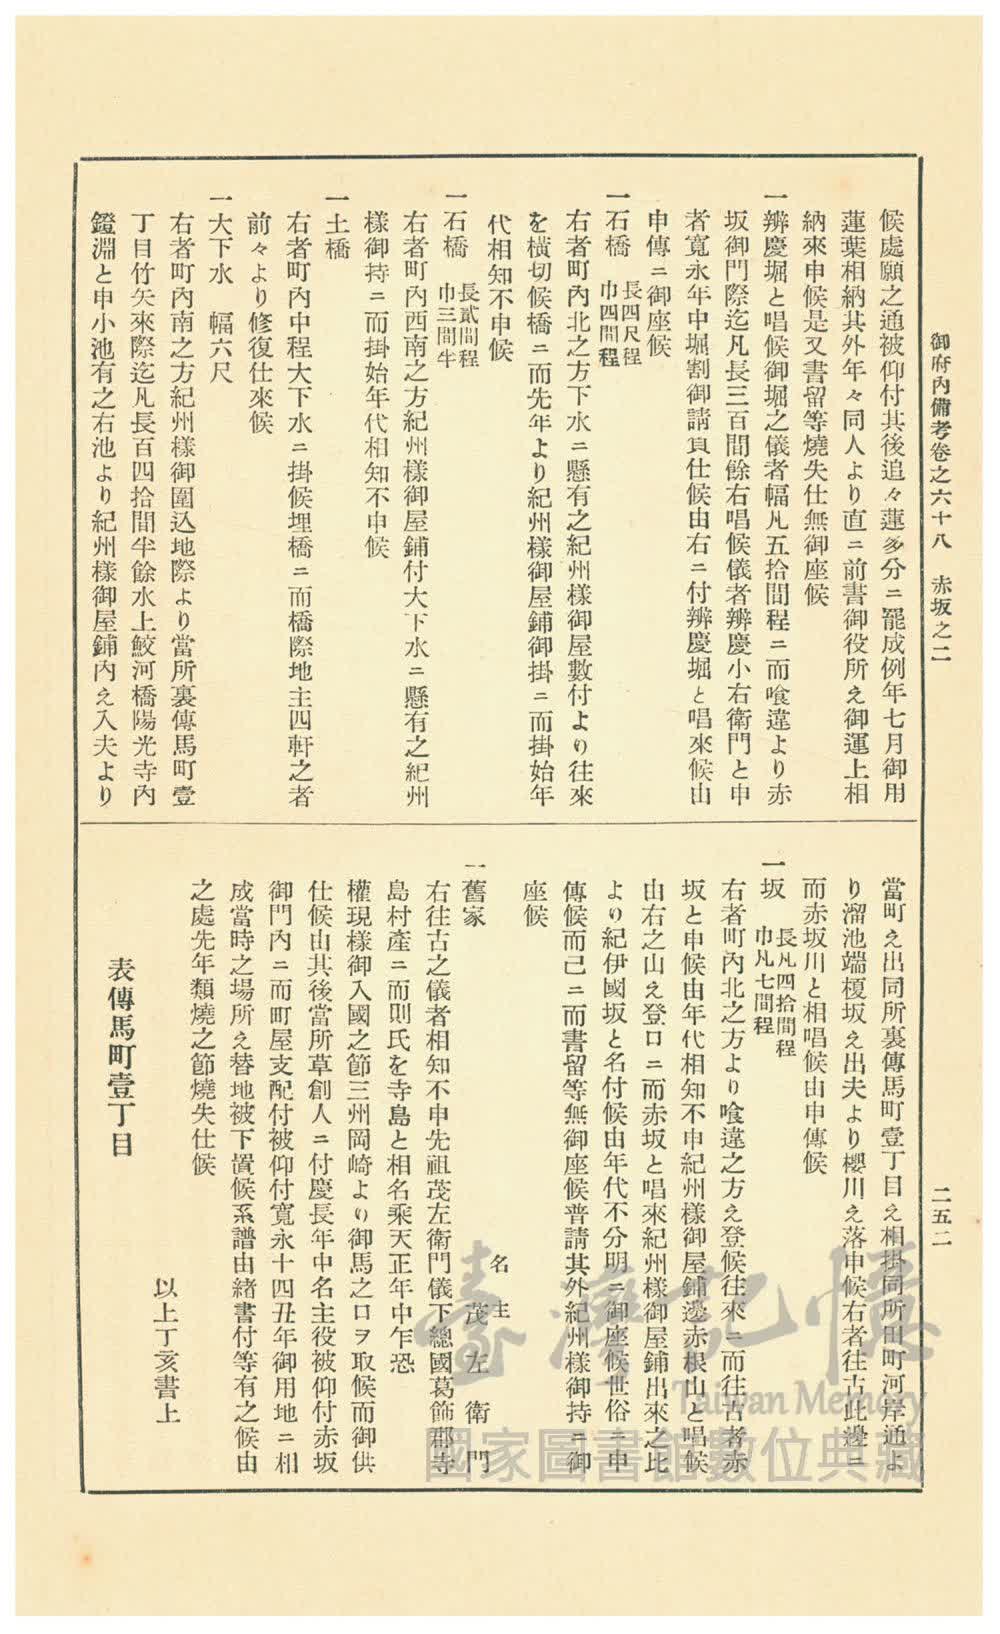 御府內備考卷之六十八　赤坂之二
二五二
候處願之通被仰付其後追々蓮多分ニ罷成例年七月御用
蓮葉相納其外年々同人より直ニ前書御役所え御運上相
納來申候是又書留等燒失仕無御座候
一辨慶堀と唱候御堀之儀者幅凡五拾間程ニ而喰違より赤
坂御門際迄凡長三百間餘右唱候儀者辨慶小右衛門と申
者寬永年中堀割御請負仕候由右ニ付辨慶堀と唱來候由
申傳ニ御座候
一石橋　長四尺程
巾四間程
右者町內北之方下水ニ懸有之紀州樣御屋敷付より往來
を橫切候橋ニ而先年より紀州樣御屋鋪御掛ニ而掛始年
代相知不申候
一石橋　長貳間程
巾三間半
右者町內西南之方紀州樣御屋鋪付大下水ニ懸有之紀州
樣御持ニ而掛始年代相知不申候
一土橋
右者町內中程大下水ニ掛候埋橋ニ而橋際地主四軒之者
前々より修復仕來候
一大下水　幅六尺
右者町內南之方紀州樣御圍込地際より當所裏傳馬町壹
丁目竹矢來際迄凡長百四拾間半餘水上鮫河橋陽光寺內
鐙淵と申小池有之右池より紀州樣御屋鋪內え入夫より
當町え出同所裏傳馬町壹丁目え相掛同所田町河岸通よ
り溜池端榎坂え出夫より櫻川え落申候右者往古此邊ニ
而赤坂川と相唱候由申傳候
一坂　長凡四拾間程
巾凡七間程
右者町內北之方より喰違之方え登候往來ニ而往古者赤
坂と申候由年代相知不申紀州樣御屋鋪邊赤根山と唱候
山右之山え登口ニ而赤坂と唱來紀州樣御屋鋪出來之比
より紀伊國坂と名付候由年代不分明ニ御座候世俗ニ申
傳候而已ニ而書留等無御座候普請其外紀州樣御持ニ御
座候
名主
一舊家　茂左衛門
右往古之儀者相知不申先祖茂左衛門儀下總國葛飾郡寺
島村產ニ而則氏を寺島と相名乘天正年中乍恐
權現樣御入國之節三州岡崎より御馬之口ヲ取候而御供
仕候由其後當所草創人ニ付慶長年中名主役被仰付赤坂
御門內ニ而町屋支配付被仰付寬永十四丑年御用地ニ相
成當時之場所え替地被下置候系譜由緒書付等有之候由
之處先年類燒之節燒失仕候
以上丁亥書上
表傳馬町壹丁目
臺灣記憶
Taiwan Memory
國家圖書館數位典藏